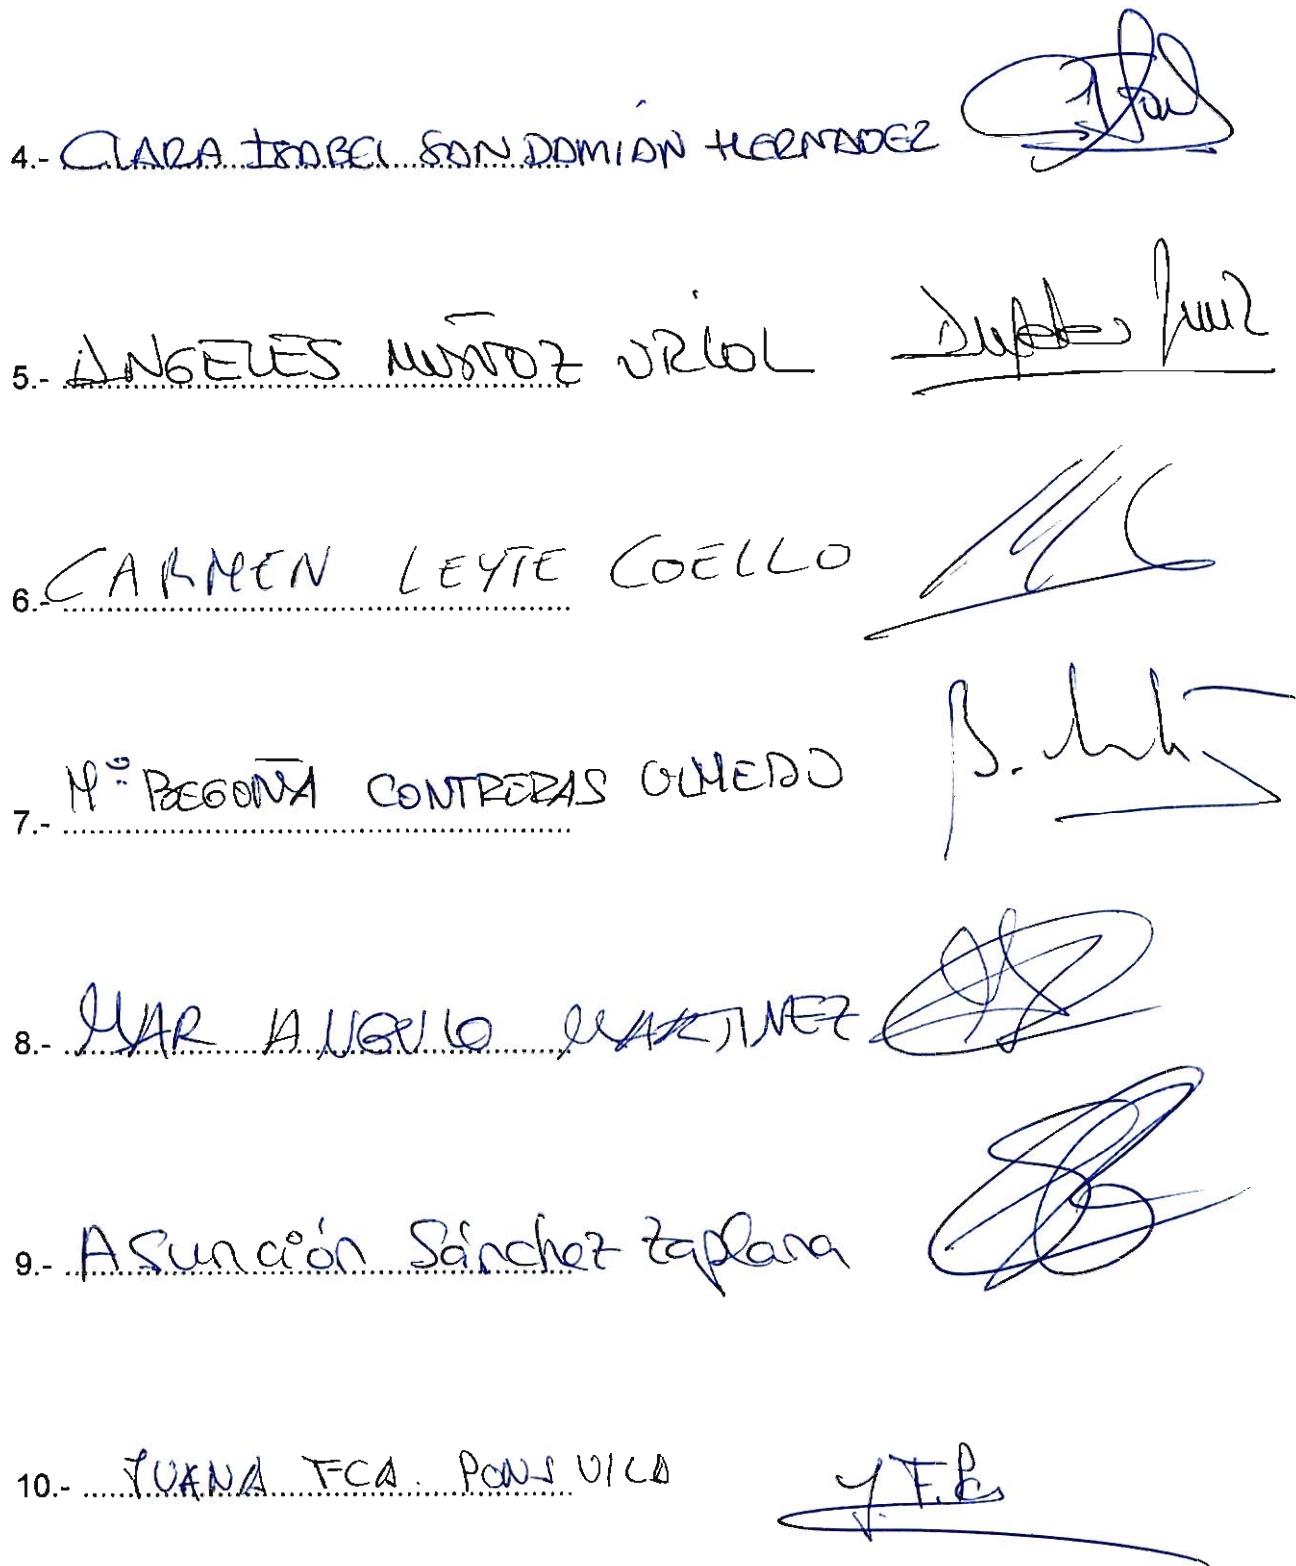 4.- CLARA ISABEL SAN DAMIÁN HERNADEZ
5.- ANGELES MUÑOZ URIOL
6.- CARMEN LEYTE COELLO
7.- Mª BEGOÑA CONTRERAS OLMEDO
8.- MAR ANGULO MARTINEZ
9.- Asunción Sánchez Zaplana
10.- JUANA FCA. PONS VILA J. F. Pons